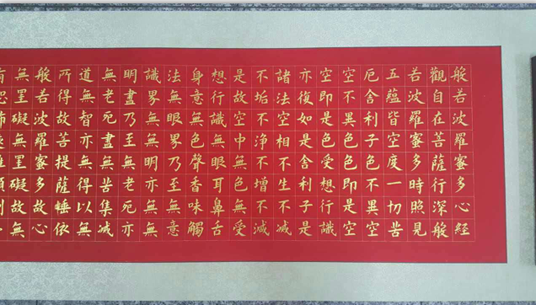 般若波羅蜜多心經
觀自在菩薩行深般
若波羅蜜多時照見
五蘊皆空度一切苦
厄舍利子色不異空
空不異色色即是空
空即是色受想行識
亦復如是舍利子是
諸法空相不生不滅
不垢不淨不增不減
是故空中無色無受
想行識無眼耳鼻舌
身意無色聲香味觸
法無眼界乃至無意
識界無無明亦無無
明盡乃至無老死亦
無老死盡無苦集滅
道無智亦無得以無
所得故菩提薩埵依
般若波羅蜜多故心
無罣礙無罣礙故無